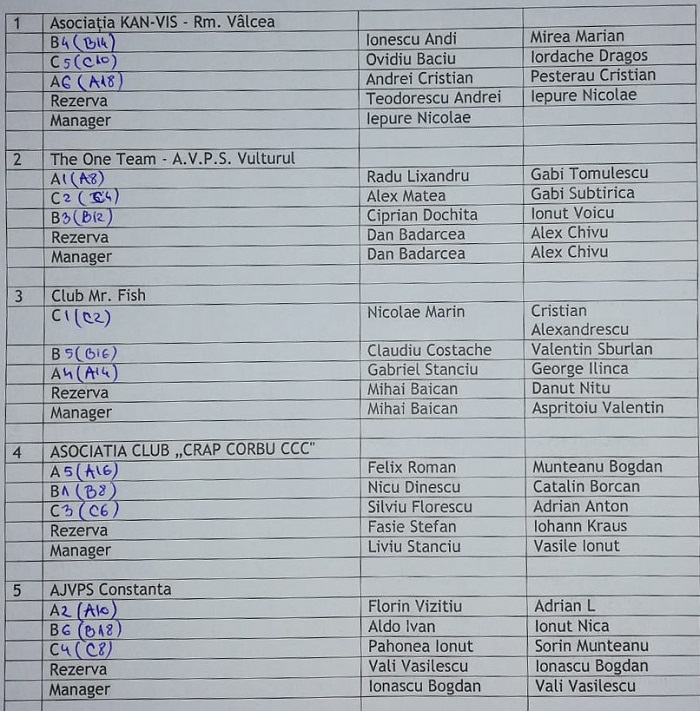 1 Asociația KAN-VIS - Rm. Vâlcea
B4 (B14) Ionescu Andi Mirea Marian
C5 (C10) Ovidiu Baciu Iordache Dragos
A6 (A18) Andrei Cristian Pesterau Cristian
Rezerva Teodorescu Andrei Iepure Nicolae
Manager Iepure Nicolae
2 The One Team - A.V.P.S. Vulturul
A1 (A8) Radu Lixandru Gabi Tomulescu
C2 (C4) Alex Matea Gabi Subtirica
B3 (B12) Ciprian Dochita Ionut Voicu
Rezerva Dan Badarcea Alex Chivu
Manager Dan Badarcea Alex Chivu
3 Club Mr. Fish
C1 (C2) Nicolae Marin Cristian
Alexandrescu
B5 (B16) Claudiu Costache Valentin Sburlan
A4 (A14) Gabriel Stanciu George Ilinca
Rezerva Mihai Baican Danut Nitu
Manager Mihai Baican Aspritoiu Valentin
4 ASOCIATIA CLUB „CRAP CORBU CCC"
A5 (A16) Felix Roman Munteanu Bogdan
B1 (B8) Nicu Dinescu Catalin Borcan
C3 (C6) Silviu Florescu Adrian Anton
Rezerva Fasie Stefan Iohann Kraus
Manager Liviu Stanciu Vasile Ionut
5 AJVPS Constanta
A2 (A10) Florin Vizitiu Adrian L
B6 (B18) Aldo Ivan Ionut Nica
C4 (C8) Pahonea Ionut Sorin Munteanu
Rezerva Vali Vasilescu Ionascu Bogdan
Manager Ionascu Bogdan Vali Vasilescu